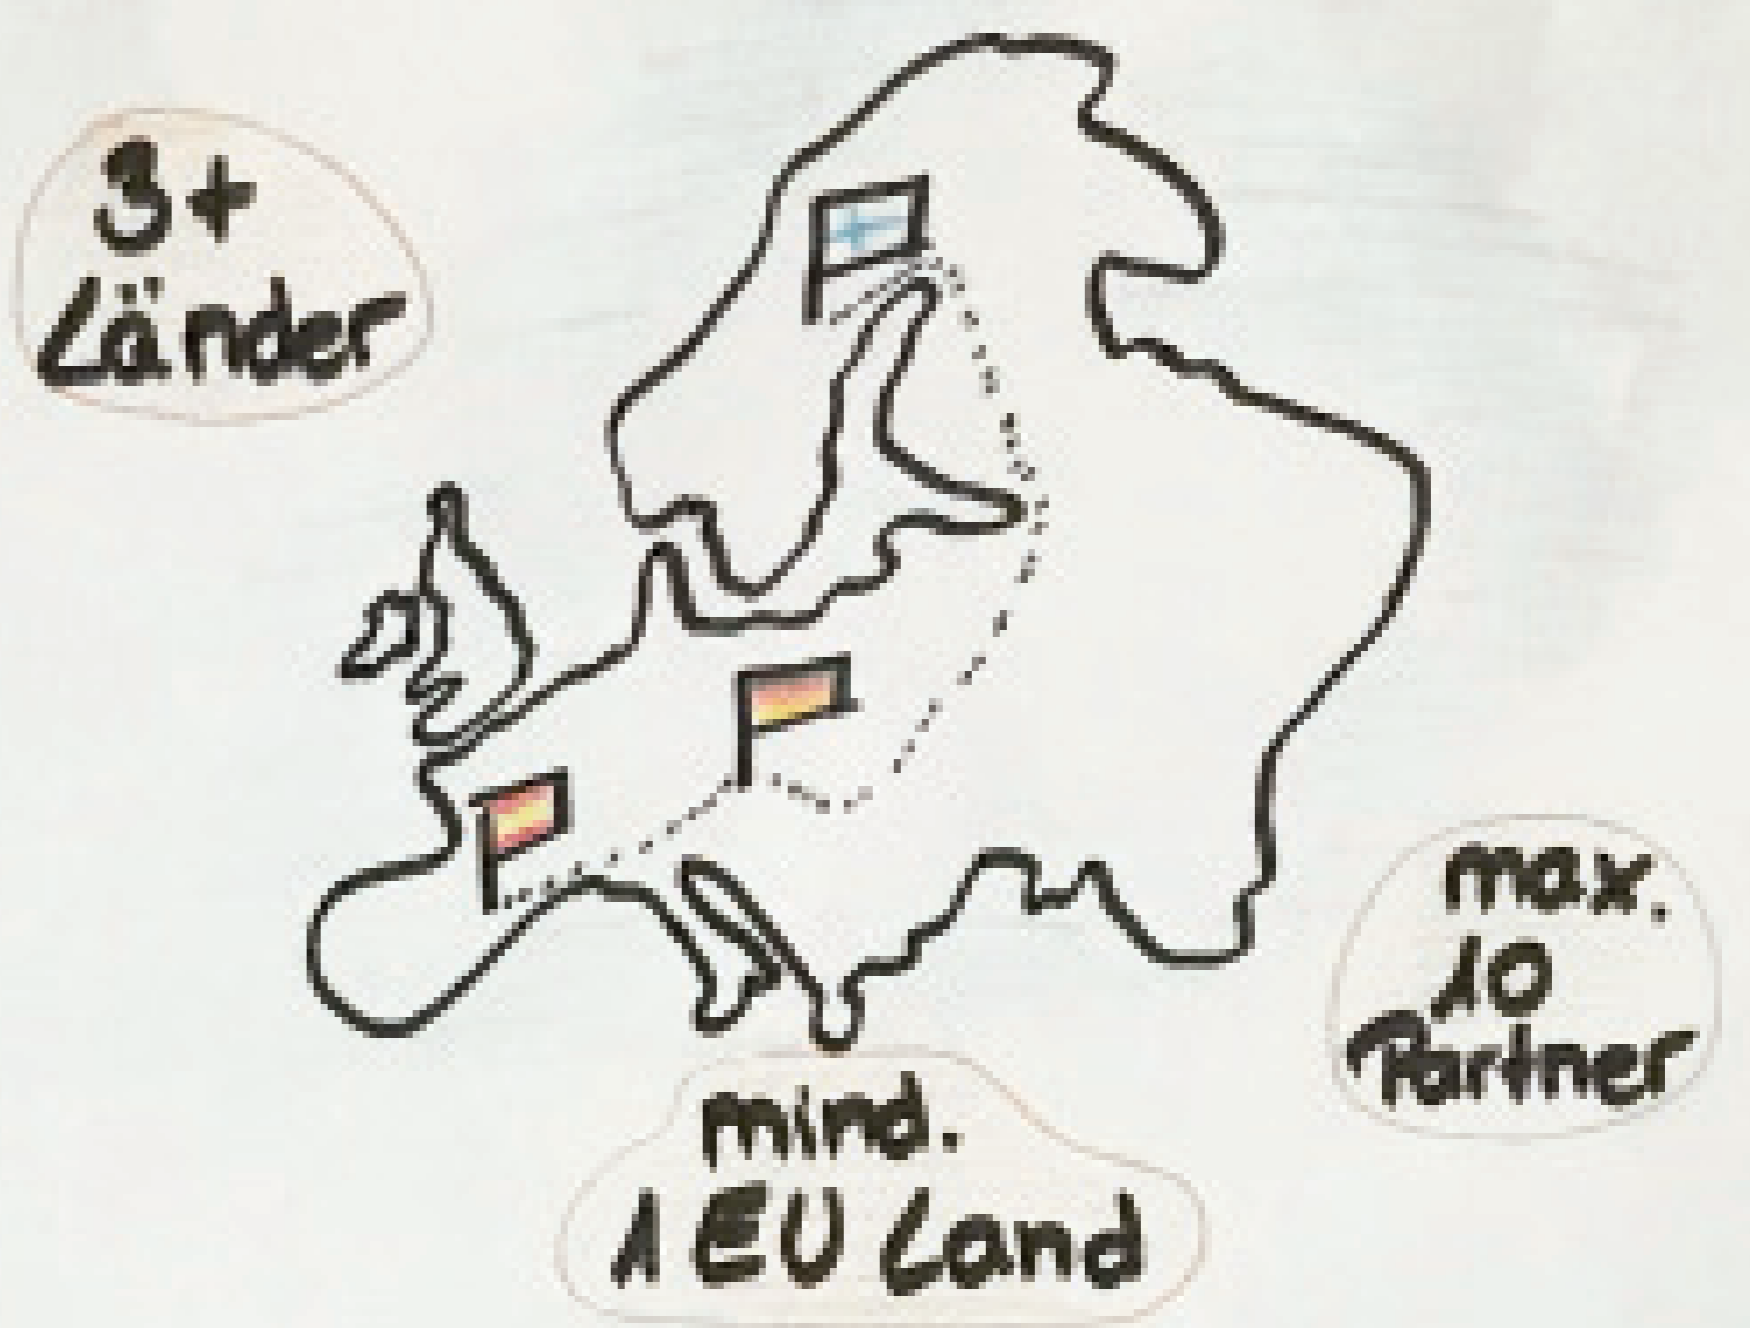 3+
Länder
max.
10
Partner
mind.
1 EU Land